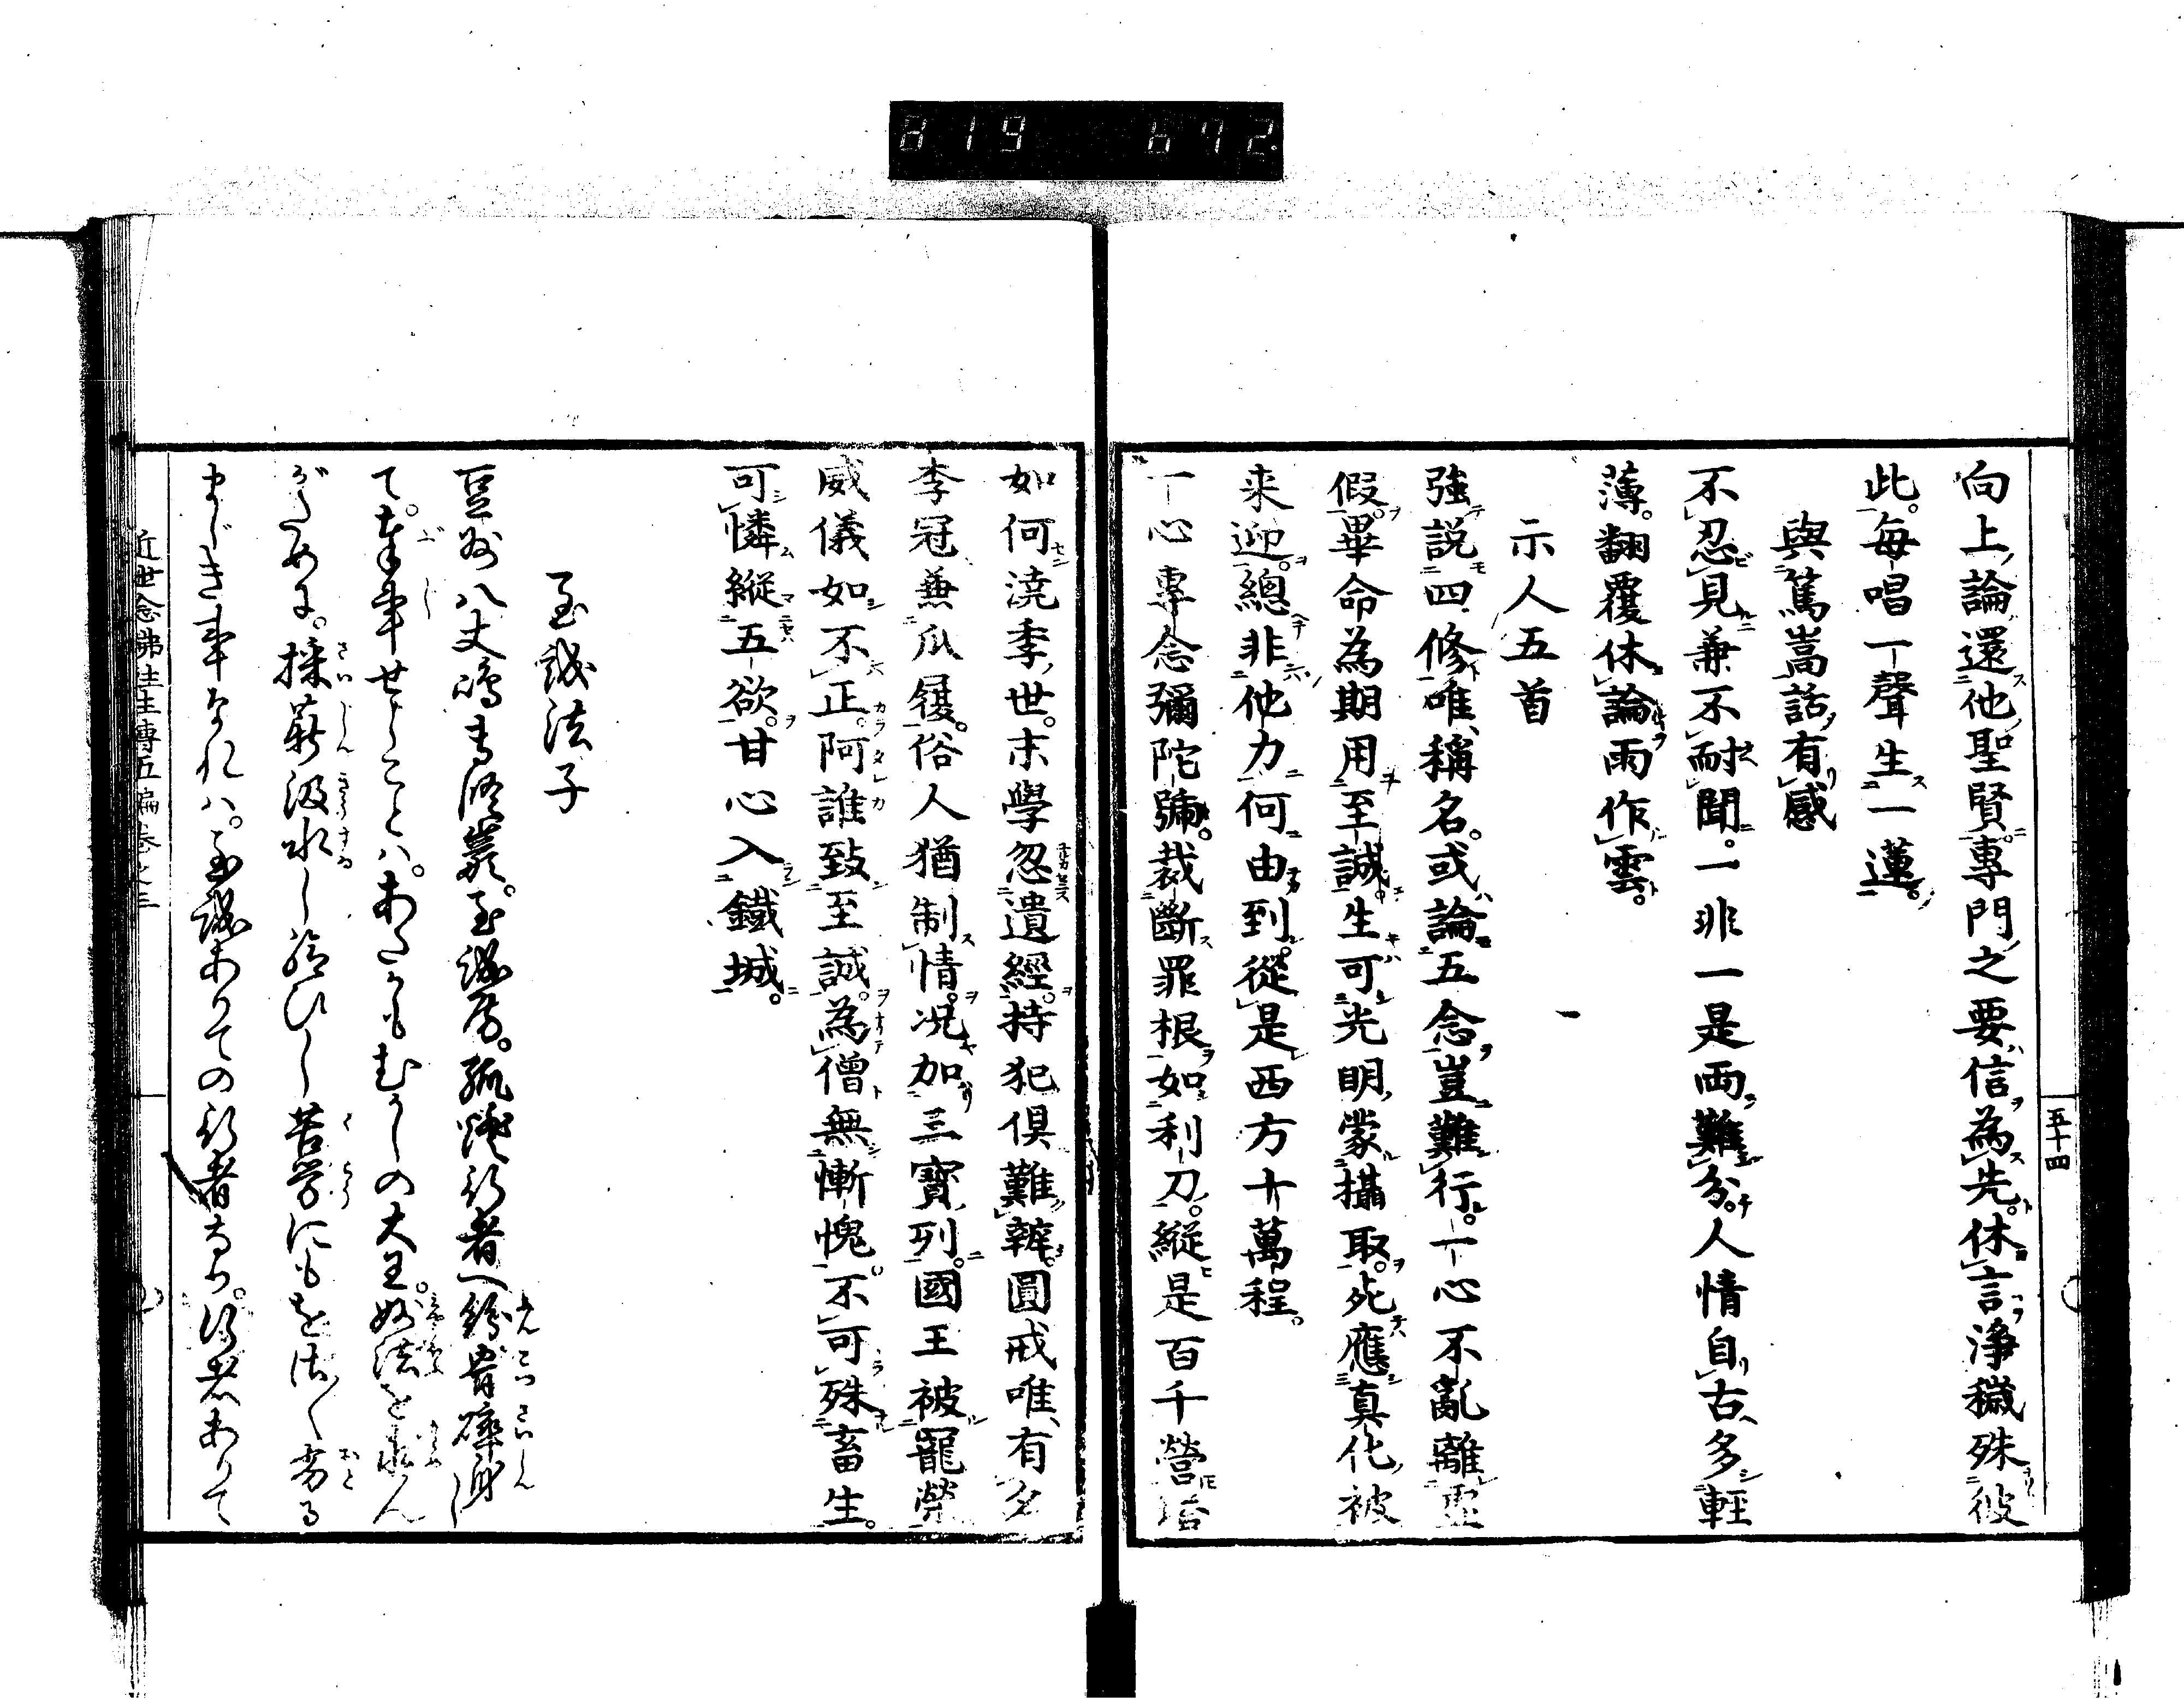 819 672
五十四
向上論還他聖賢。專門之要信為先。休言淨穢殊彼
此。每唱一聲生一蓮。
與篤嵩話有感
不忍見兼不耐聞。一非一是両難分。人情自古多輕
薄。翻覆休論雨作雲。
示人五首
強説四修唯稱名。或論五念豈難行。一心不亂離
假。畢命為期用至誠。生可光明蒙攝取。死應真化被
来迎。總非他力何由到。從是西方十萬程。
一心專念彌陀號。裁斷罪根如利刀。縱是百千營
如何澆季世。末學忽遺經。持犯倶難辨。圓戒唯有名
李冠兼瓜履。俗人猶制情。况加三寶列。國王被寵榮
威儀如不正。阿誰致至誠。為僧無慚愧。不可殊畜生。
可憐縱五欲。甘心入鐵城。
至誠法子
豆州八丈嶋専修叢。至誠房。孤燈行者へ粉骨碎身し
て。奉事せしことハ。あたかもむかしの大王。妙法を求ん
がために。採薪汲水し給ひし苦労にもをさ〱劣る
まじき事なれハ。至誠ありての行者なり。行者ありて
近世念佛往生傳五編巻之三